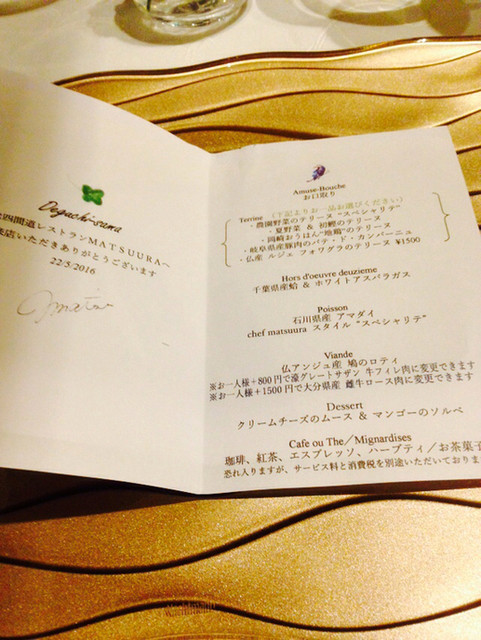 Deguchi-sama
四間道レストランMATSUURAへ
来店いただきありがとうございます
22/5/2016
Amuse-Bouche
お口取り
Terrine (下記よりお一品お選びください)
・農園野菜のテリーヌ "スペシャリテ"
・夏野菜 & 初鰹のテリーヌ
・岡崎おうはん"地鶏"のテリーヌ
・岐阜県産豚肉のパテ・ド・カンパーニュ
・仏産 ルジェ フォワグラのテリーヌ ¥1500
Hors d'oeuvre deuzieme
千葉県産蛤 & ホワイトアスパラガス
Poisson
石川県産 アマダイ
chef matsuura スタイル "スペシャリテ"
Viande
仏アンジュ産 鳩のロティ
※お一人様+800円で濠グレートサザン 牛フィレ肉に変更できます
※お一人様+1500円で大分県産 雌牛ロース肉に変更できます
Dessert
クリームチーズのムース & マンゴーのソルベ
Cafe ou The/Mignardises
珈琲、紅茶、エスプレッソ、ハーブティ/お茶菓子
恐れ入りますが、サービス料と消費税を別途いただいておりま